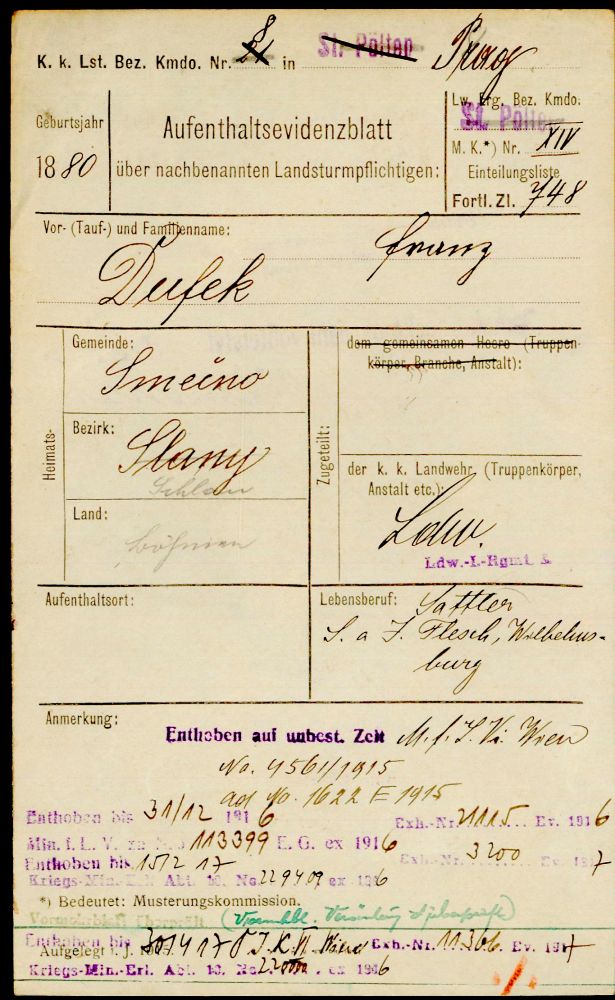 K. k. Lst. Bez. Kmdo. Nr. 8 in St. Pölten Prag
Geburtsjahr
1880
Aufenthaltsevidenzblatt
über nachbenannten Landsturmpflichtigen:
Lw. Erg. Bez. Kmdo.
St. Pölten
M. K.*) Nr. XIV
Einteilungsliste
Fortl. Zl. 748
Vor- (Tauf-) und Familienname:
Franz
Dufek
Heimats-
Gemeinde:
Smečno
Bezirk:
Slaný
Schlan
Land:
Böhmen
Zugeteilt:
dem gemeinsamen Heere (Truppen-
körper, Branche, Anstalt):
der k. k. Landwehr (Truppenkörper,
Anstalt etc.):
Ldw.
Ldw.-I.-Rgmt.
Aufenthaltsort:
Lebensberuf: Sattler
S. a J. Flesch, Wilhelms-
burg
Anmerkung:
Enthoben auf unbest. Zeit M. f. L. V. Wien
No. 4561/1915
ad No. 1622 E 1915
Enthoben bis 31/12 1916 Exh.-Nr. 21115 Ev. 1916
Min. f. L. V. 113399 E. G. ex 1916
Enthoben bis 15/2 17 Exh.-Nr. 3200 Ev. 1917
Kriegs-Min. Abt. 10. No. 229409 ex 1916
*) Bedeutet: Musterungskommission.
Enthoben bis 30/4 17 Exh.-Nr. 11306 Ev. 1917
Aufgelegt i. J.
Kriegs-Min.-Erl. Abt. 10. ex 1916